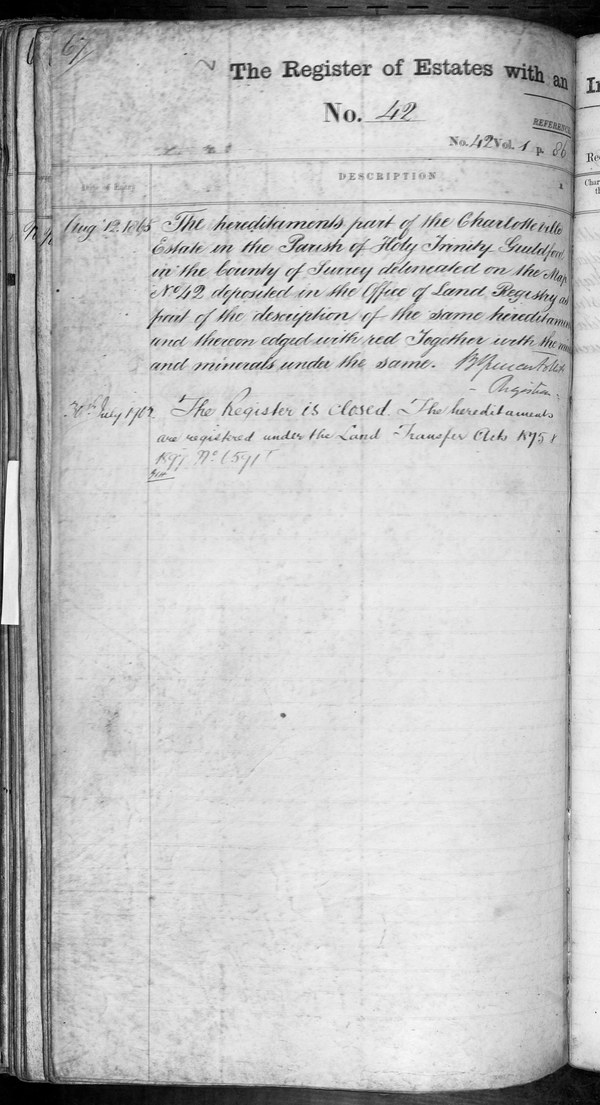 67
The Register of Estates with an
No. 42
REFERENCE
No. 42 Vol. 1 p. 86
Date of Entry
DESCRIPTION
Augt 12. 1865 The hereditaments part of the Charlotteville
Estate in the Parish of Holy Trinity Guildford
in the County of Surrey delineated on the Map
No 42 deposited in the Office of Land Registry as
part of the description of the same hereditamen
and thereon edged with red Together with the
and minerals under the same.
Registrar.
30th July 1902 The Register is closed. The hereditaments
are registred under the Land Transfer Acts 1875 &
1897 No
In
Re
Char
th